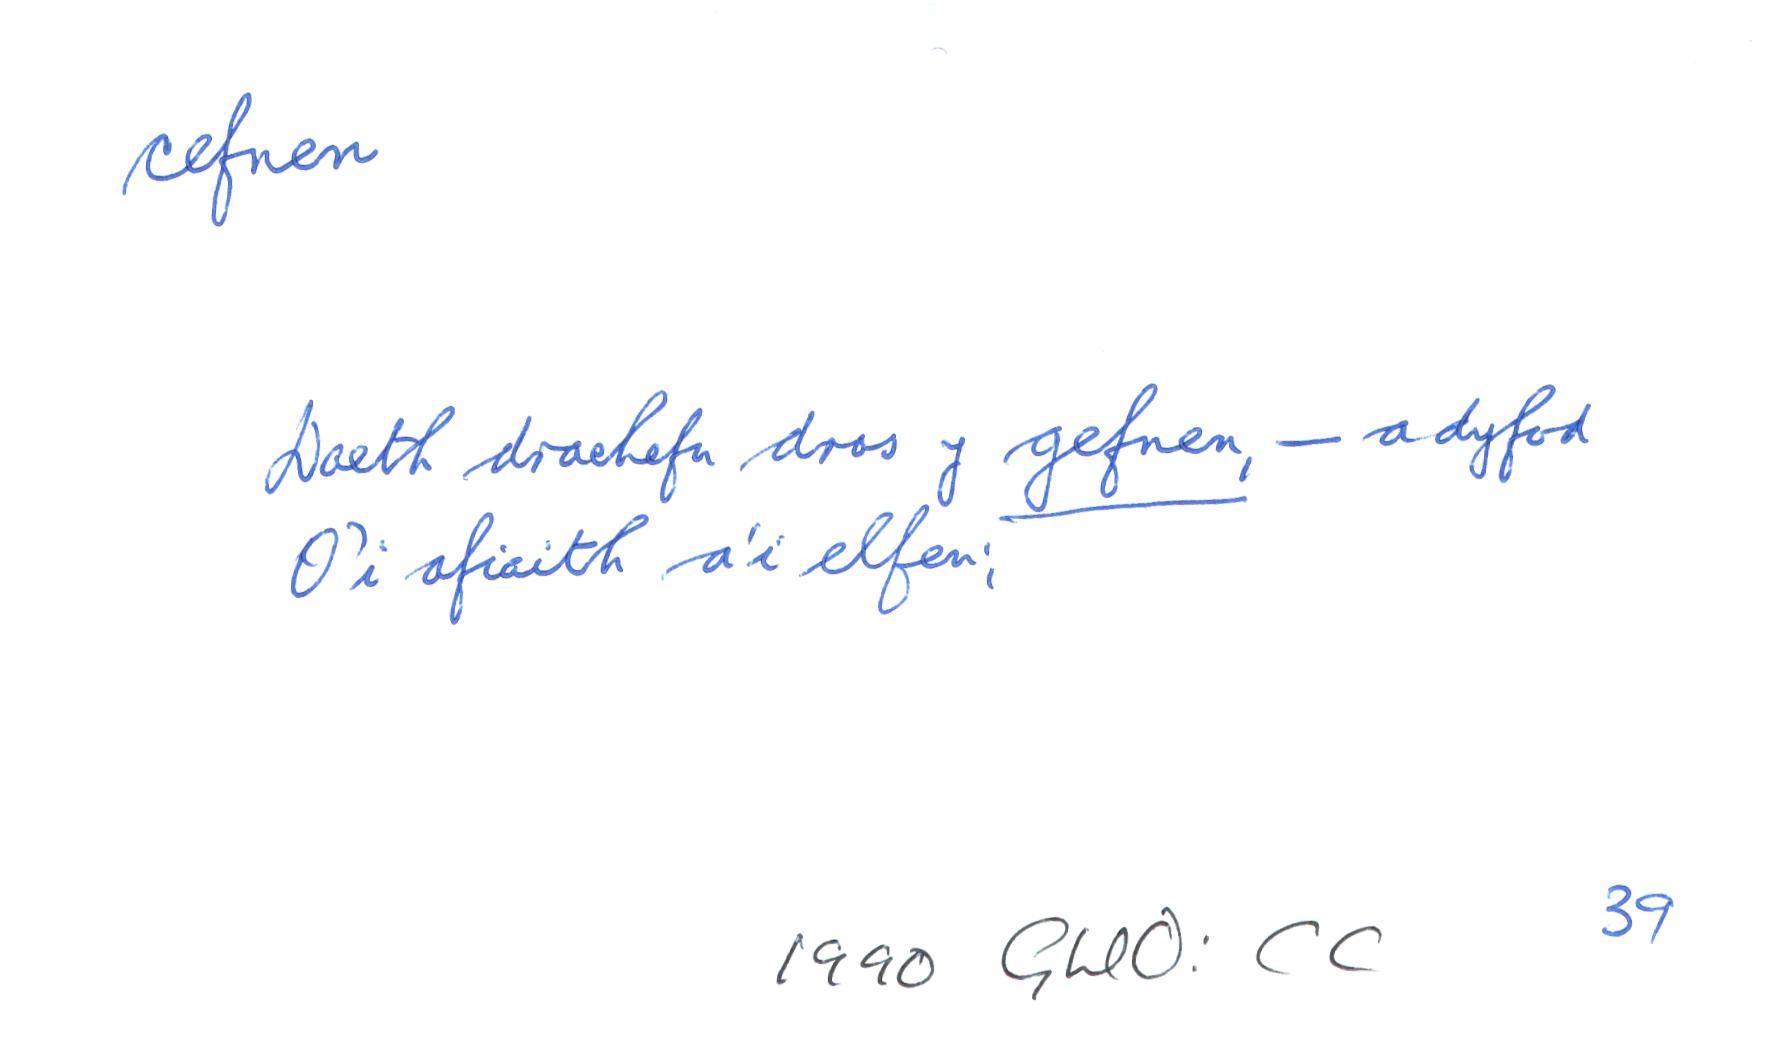 cefnen
Daeth drachefn dros y gefnen, — a dyfod
O'i afiaith a'i elfen;
39
1990 GLlO: CC